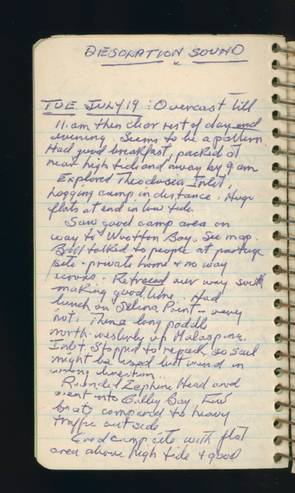 DESOLATION SOUND
TUE JULY 19: Overcast till
11 am then clear rest of day and
evening Seems to be a pattern
Had good breakfast, packed at
near high tide and away by 9 am
Explored Theodosia Inlet,
logging camp in distance. Huge
flats at end in low tide.
Saw good camp area on
way to Wootton Bay. See map
talked to people at portage
site - private home & no way
across. Retraced our way south
making good time. Had
lunch on Selina Point - very
hot. Then a long paddle
north-westerly up Malaspina
Inlet. Stopped to repack so sail
might be used but wind in
wrong direction.
Rounded Zephine Head and
went into Galley Bay. Few
boats compared to heavy
traffic outside
Good camp site with flat
area above high tide & good